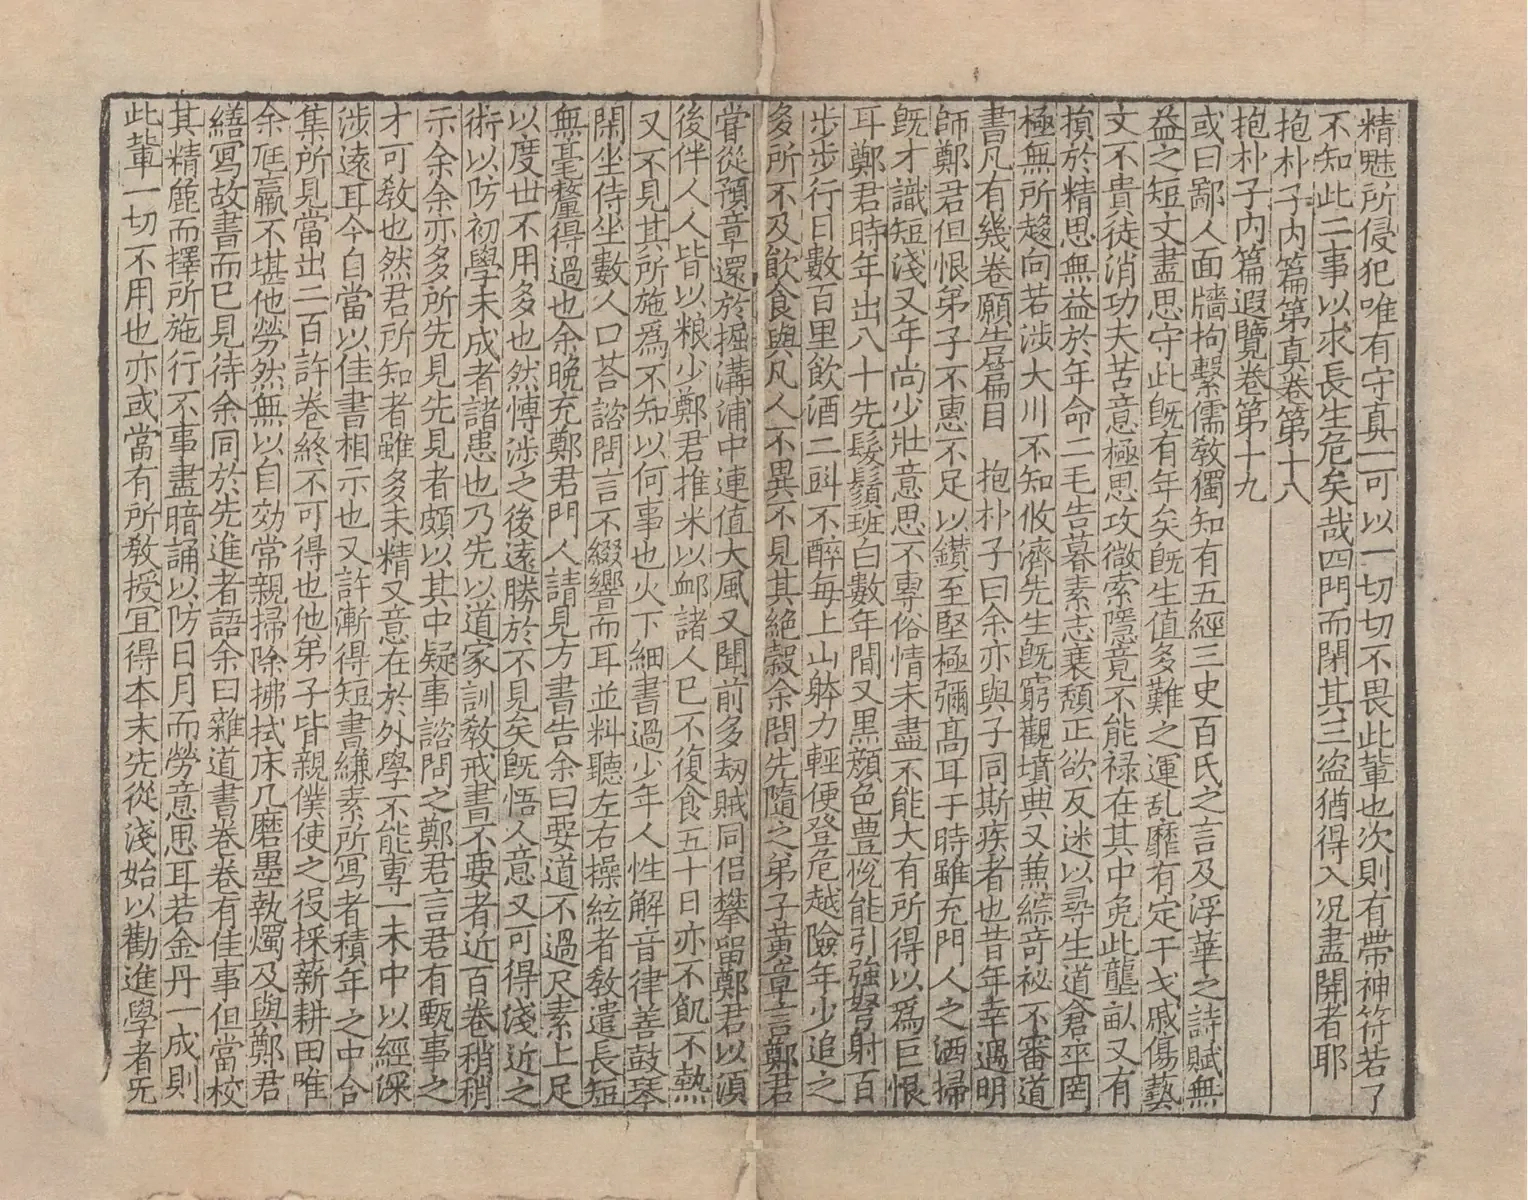 精魅所侵犯唯有守真一可以一切切不畏此輩也次則有帶神符若了
不知此二事以求長生危矣哉四門而閉其三盜猶得入况盡開者耶
抱朴子內篇第真卷第十八
抱朴子內篇遐覽卷第十九
或曰鄙人面牆拘繫儒教獨知有五經三史百氏之言及浮華之詩賦無
益之短文盡思守此旣有年矣旣生值多難之運乱靡有定干戈戚傷藝
文不貴徒消功夫苦意極思攻微索隱竟不能禄在其中免此壟畝又有
損於精思無益於年命二毛告暮素志衰頹正欲反迷以尋生道倉卒罔
極無所趍向若涉大川不知攸濟先生旣窮觀墳典又兼綜竒祕不審道
書凡有幾卷願告篇目 抱朴子曰余亦與子同斯疾者也昔年幸遇明
師鄭君但恨弟子不惠不足以鑽至堅極彌髙耳于時雖充門人之洒掃
旣才識短淺又年尚少壯意思不專俗情未盡不能大有所得以爲巨恨
耳鄭君時年出八十先髮鬚班白數年間又黑顔色豊恱能引強弩射百
步步行日數百里飲酒二㪷不醉每上山躰力輕便登危越險年少追之
多所不及飲食與凡人不異不見其絕穀余問先隨之弟子黄章言鄭君
甞從預章還於掘溝浦中連值大風又聞前多刼賊同侶攀留鄭君以湏
後伴人人皆以粮少鄭君推米以䘏諸人已不復食五十日亦不飢不熱
又不見其所施爲不知以何事也火下細書過少年人性解音律善鼓琴
閑坐侍坐數人口荅諮問言不綴響而耳並料聽左右操絃者教遣長短
無毫釐得過也余晚充鄭君門人請見方書告余曰要道不過尺素上足
以度世不用多也然慱涉之後遠勝於不見矣旣悟人意又可得淺近之
術以防初學未成者諸患也乃先以道家訓教戒書不要者近百卷稍稍
示余余亦多所先見先見者頗以其中疑事諮問之鄭君言君有甄事之
才可教也然君所知者雖多未精又意在於外學不能專一未中以經深
涉遠耳今自當以佳書相示也又許漸得短書縑素所寫者積年之中合
集所見當出二百許卷終不可得也他弟子皆親僕使之役採薪耕田唯
余尫羸不堪他勞然無以自効常親掃除拂拭床几磨墨執燭及與鄭君
繕寫故書而已見待余同於先進者語余曰雜道書卷卷有佳事但當校
其精麄而擇所施行不事盡暗誦以防日月而勞意思耳若金丹一成則
此輩一切不用也亦或當有所教授宜得本末先從淺始以勸進學者旡